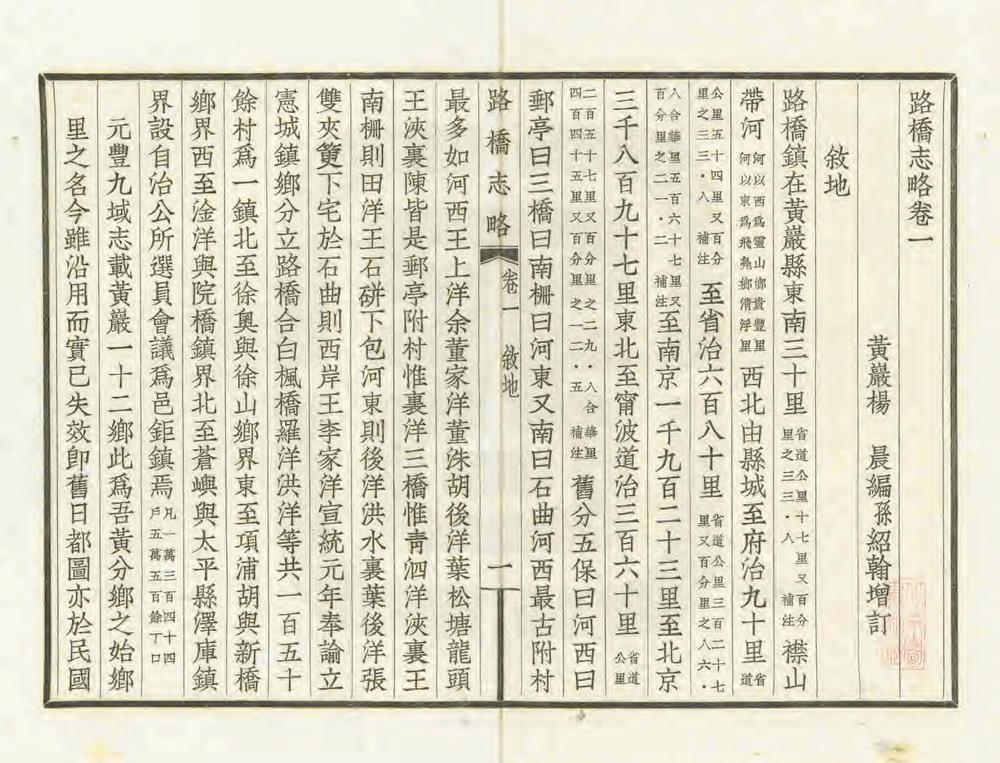 路橋志略卷一
黃巖楊　晨編孫紹翰增訂
敘地
路橋鎮在黃巖縣東南三十里省道公里十七里又百分里之三三．八　補注襟山
帶河河以西爲靈山鄉貴豐里河以東爲飛鳧鄉清浮里西北由縣城至府治九十里省道
公里五十四里又百分里之三三．八　補注至省治六百八十里省道公里三百二十七里又百分里之八六．
八合華里五百六十七里又百分里之二一．二　補注至南京一千九百二十三里至北京
三千八百九十七里東北至甯波道治三百六十里省道公里
二百五十七里又百分里之二九．八合華里四百四十五里又百分里之一二．五　補注舊分五保曰河西曰
郵亭曰三橋曰南柵曰河東又南曰石曲河西最古附村
路橋志略　卷一　敘地　一
最多如河西王上洋余董家洋董洙胡後洋葉松塘龍頭
王浹裏陳皆是郵亭附村惟裏洋三橋惟青泗洋浹裏王
南柵則田洋王石硑下包河東則後洋洪水裏葉後洋張
雙夾籆下宅於石曲則西岸王李家洋宣統元年奉諭立
憲城鎮鄉分立路橋合白楓橋羅洋洪洋等共一百五十
餘村爲一鎮北至徐奥與徐山鄉界東至項浦胡與新橋
鄉界西至淦洋與院橋鎮界北至蒼嶼與太平縣澤庫鎮
界設自治公所選員會議爲邑鉅鎮焉凡一萬三百四十四戶五萬五百餘丁口
元豐九域志載黃巖一十二鄉此爲吾黃分鄉之始鄉
里之名今雖沿用而實已失效卽舊日都圖亦於民國